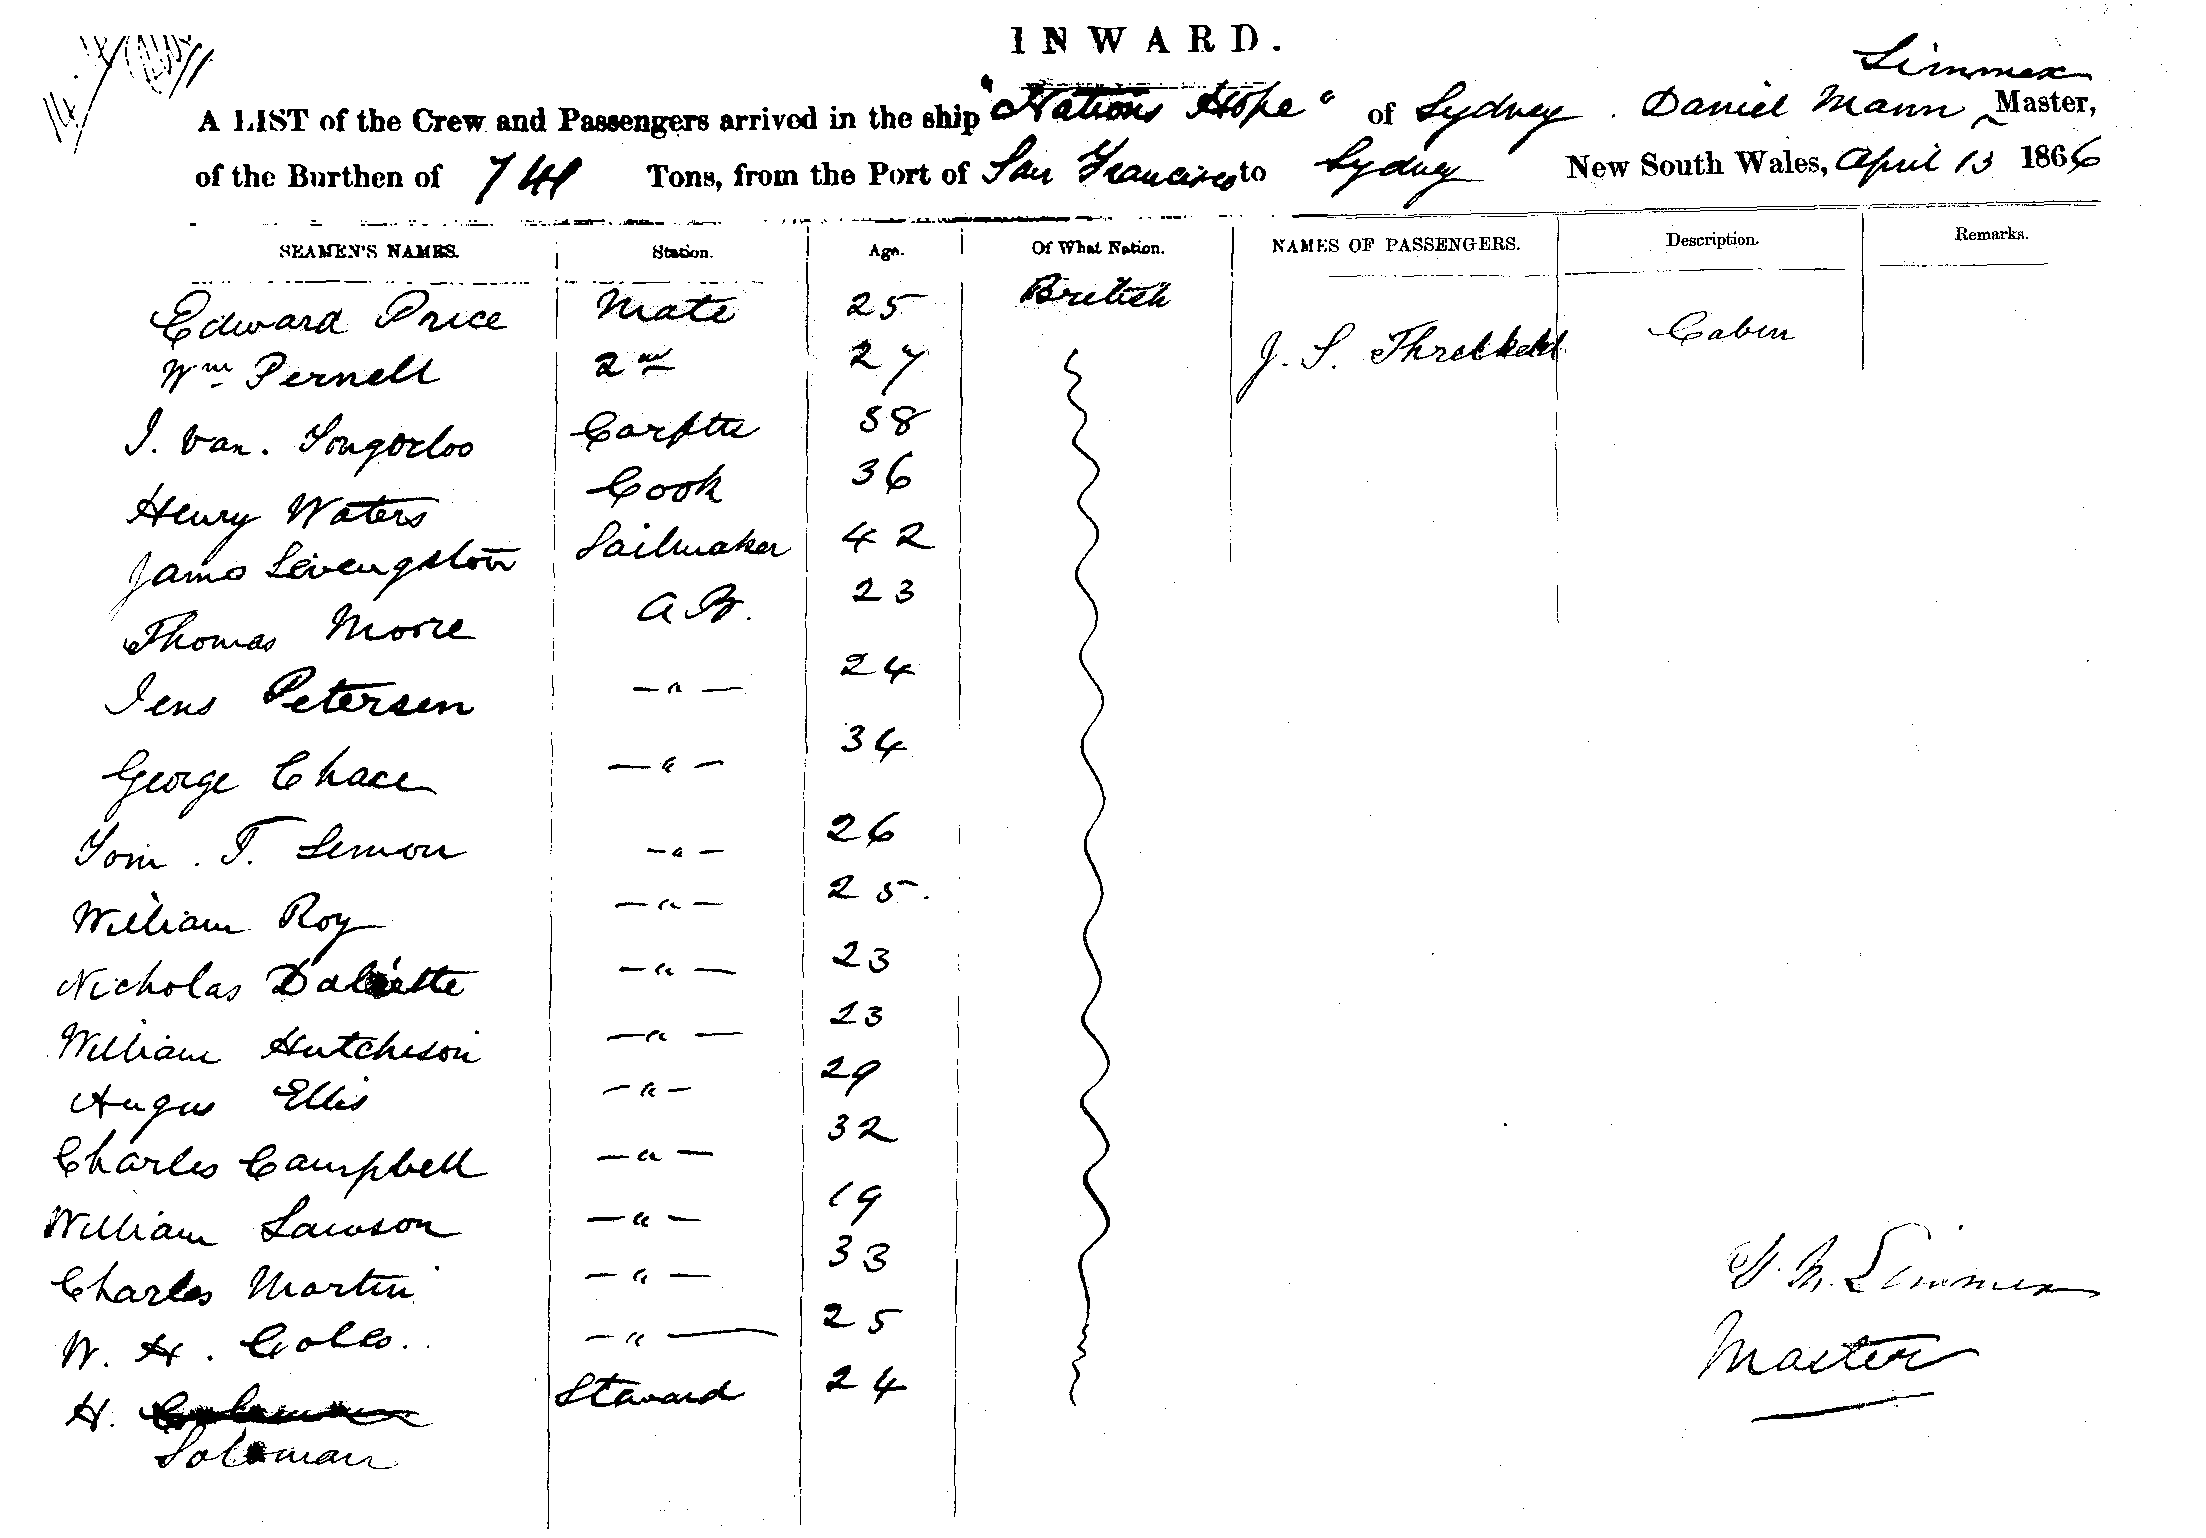 INWARD.
Limmex
A LIST of the Crew and Passengers arrived in the ship "Nations Hope" of Sydney. Daniel Mann Master,
of the Burthen of 741 Tons, from the Port of San Francisco to Sydney New South Wales, April 13 1866
SEAMEN'S NAMES. Station. Age. Of What Nation. NAMES OF PASSENGERS. Description. Remarks.
Edward Price Mate 25 British
J. S. Threlkeld Cabin
Wm Pernell 2nd 27
J. Van. Carptte 38
Henry Waters Cook 36
James Livengston Sailmaker 42
Thomas Moore A B. 23
Jens Petersen —"— 24
George Chace —"— 34
Tom. T. Lemon —"— 26
William Roy —"— 25.
Nicholas —"— 23
William Hutcheson —"— 23
Angus Ellis —"— 29
Charles Campbell —"— 32
William Lawson —"— 19
Charles Martin —"— 33
W. H. Colls. —"— 25
H. Steward 24
Soloman
D. M. Limmex
Master